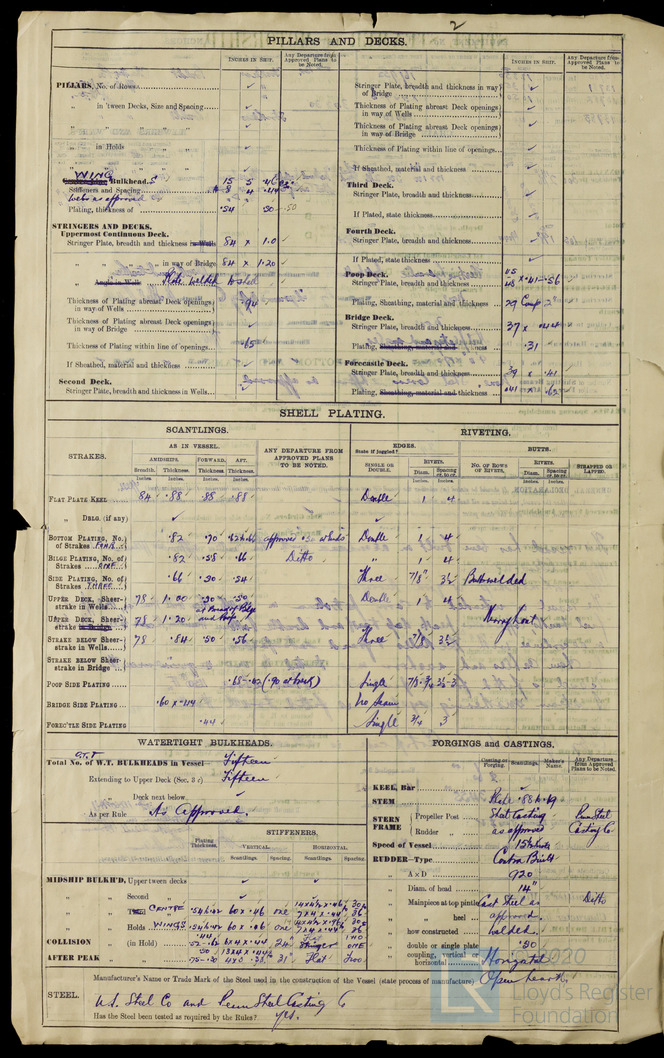 2
PILLARS AND DECKS.
INCHES IN SHIP.
Any Departure from Approved Plans to be Noted.
PILLARS, No. of Rows
„ in 'tween Decks, Size and Spacing
„ in Holds
WING Bulkhead.S 15 5 .46
Stiffeners and Spacing 8 4 .44
Webs as approved
Plating, thickness of .54 .50 .50
STRINGERS AND DECKS.
Uppermost Continuous Deck.
Stringer Plate, breadth and thickness in Wells 84 x 1.0
„ „ in way of Bridge 84 x 1.20
„ Angle in Wells Plate welded
Thickness of Plating abreast Deck openings in way of Wells .94
Thickness of Plating abreast Deck openings in way of Bridge
Thickness of Plating within line of openings .65
If Sheathed, material and thickness
Second Deck.
Stringer Plate, breadth and thickness in Wells
INCHES IN SHIP.
Any Departure from Approved Plans to be Noted.
Stringer Plate, breadth and thickness in way of Bridge
Thickness of Plating abreast Deck openings in way of Wells
Thickness of Plating abreast Deck openings in way of Bridge
Thickness of Plating within line of openings
If Sheathed, material and thickness
Third Deck.
Stringer Plate, breadth and thickness
If Plated, state thickness
Fourth Deck.
Stringer Plate, breadth and thickness
If Plated, state thickness
Poop Deck.
Stringer Plate, breadth and thickness x .41 - .56
Plating, Sheathing, material and thickness .29 Comp 2"
Bridge Deck.
Stringer Plate, breadth and thickness 37 x .44
Plating, Sheathing, material and thickness .31
Forecastle Deck.
Stringer Plate, breadth and thickness 39 x .41
Plating, Sheathing, material and thickness .41 x .62
SHELL PLATING.
SCANTLINGS.
RIVETING.
STRAKES.
AS IN VESSEL.
AMIDSHIPS. FORWARD. AFT.
Breadth. Thickness. Thickness. Thickness.
Inches. Inches. Inches. Inches.
ANY DEPARTURE FROM APPROVED PLANS TO BE NOTED.
EDGES.
State if joggled?
SINGLE OR DOUBLE.
RIVETS.
Diam. Spacing cr. to cr.
Inches. Inches.
BUTTS.
NO. OF ROWS OF RIVETS.
RIVETS.
Diam. Spacing cr. to cr.
Inches. Inches.
STRAPPED OR LAPPED.
FLAT PLATE KEEL 84 .88 .88 .88 Double 1 4
„ DBLG. (if any)
BOTTOM PLATING, No. of Strakes FOUR .82 .70 approved Double 1 4
BILGE PLATING, No. of Strakes ONE .82 .58 .66 Ditto „ 4
SIDE PLATING, No. of Strakes THREE .66 .50 .54 Three 7/8" 3½ Butts welded
UPPER DECK, Sheerstrake in Wells 78 1.00 .50 .50 Double 1 4
UPPER DECK, Sheerstrake in Bridge 78 1.20 Throughout
STRAKE BELOW Sheerstrake in Wells 78 .84 .50 .56 Three 7/8 3½
STRAKE BELOW Sheerstrake in Bridge
POOP SIDE PLATING (.90 at break) Single 7/8 - 3/4 3½-3
BRIDGE SIDE PLATING .60 x .44 No Seam
FORECTLE SIDE PLATING .44 Single 3/4 3
WATERTIGHT BULKHEADS.
Total No. of W.T. BULKHEADS in Vessel Fifteen
Extending to Upper Deck (Sec. 3 c) Fifteen
„ Deck next below
As per Rule As Approved.
Plating Thickness.
STIFFENERS.
VERTICAL.
Scantlings. Spacing.
HORIZONTAL.
Scantlings. Spacing.
MIDSHIP BULKH'D, Upper tween decks
„ „ Second „
„ „ CENTRE 60 x .46 one
„ „ Holds WINGS 60 x .46 one
COLLISION „ (in Hold) 6x4 x .44 24" Stringer ONE
AFTER PEAK „ „ 21" Flat Two
FORGINGS and CASTINGS.
Casting or Forging. Scantlings. Maker's Name. Any Departure from Approved Plans to be Noted.
KEEL, Bar
STEM Plate .88
STERN FRAME Propeller Post Steel Casting Penn Steel
Rudder „ as approved Casting Co
Speed of Vessel
RUDDER—Type Contra Built
„ A x D 920
„ Diam. of head 14"
„ Mainpiece at top pintle Cast Steel as Ditto
„ „ heel approved.
„ how constructed welded.
„ double or single plate .50
„ coupling, vertical or horizontal Horizontal
STEEL.
Manufacturer's Name or Trade Mark of the Steel used in the construction of the Vessel (state process of manufacture) Open hearth.
U.S. Steel Co and Penn Steel Casting Co
Has the Steel been tested as required by the Rules? yes.
2020
LR
Lloyd's Register
Foundation